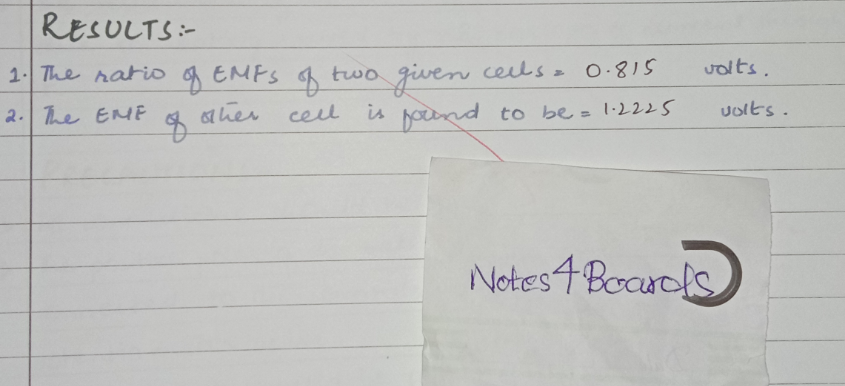 RESULTS:-
1. The ratio of EMFs of two given cells = 0.815 volts.
2. The EMF of other cell is found to be = 1.2225 volts.
Notes4Boards